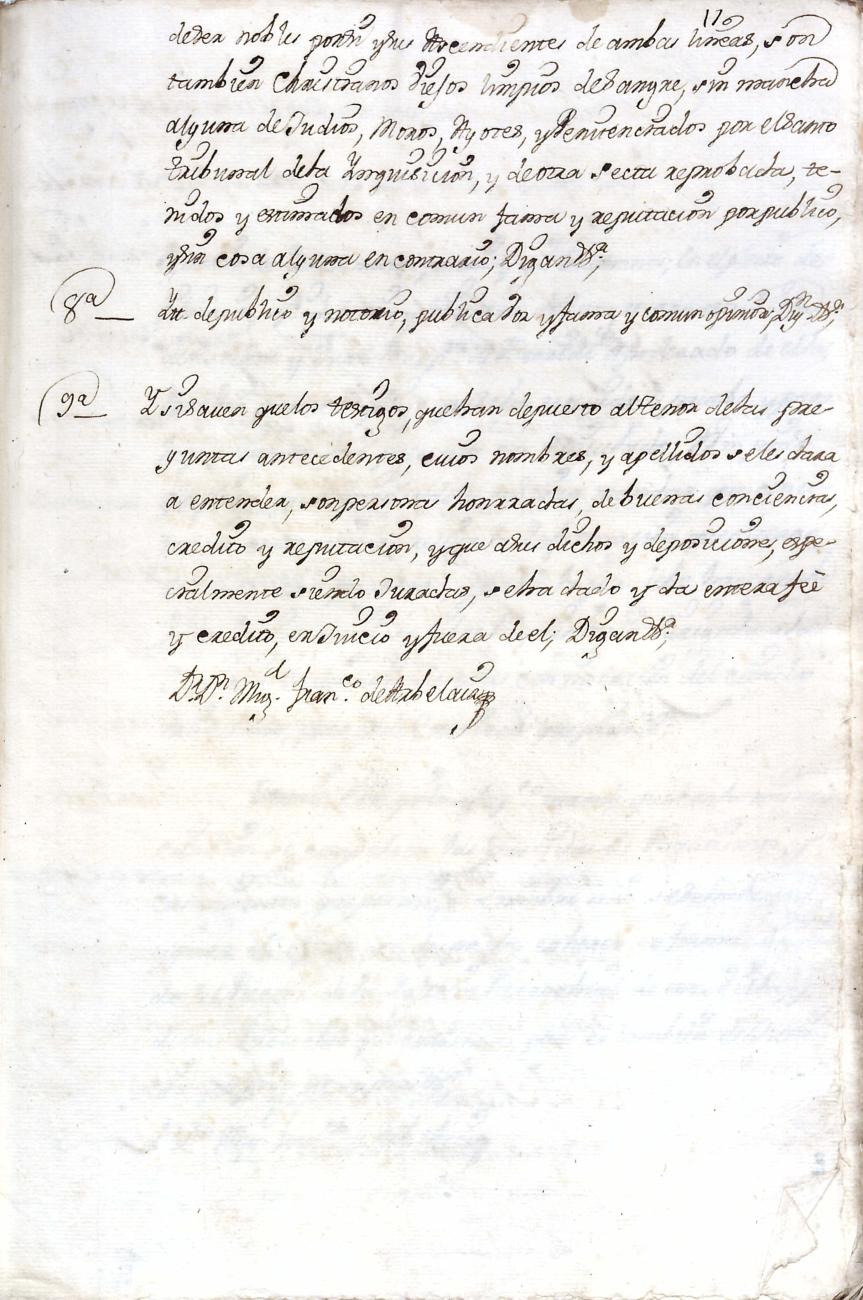 116
de ser nobles por sí y sus Ascendientes de ambas lineas, son
tambien Christianos viejos limpios de Sangre, sin mancha
alguna de Judios, Moros, Agotes, y Penitenciados por el Santo
tribunal de la Ynquisicion, y de otra secta reprobada, te-
nidos y estimados en comun fama y reputacion por publico,
y sin cosa alguna en contrario; Digan &.ª;
8ª Yt. de publico y notorio, publica voz y fama y comun opinion, Dig.n &.ª;
9ª Y si saven que los testigos, que han depuesto al tenor de las pre-
guntas antecedentes, cuios nombres, y apellidos se les dara
a entender, son personas honrradas, de buenas conciencias,
credito y reputacion, y que a sus dichos y deposiciones, espe-
cialmente siendo Juradas, se ha dado y da entera feè
y credito, en Juicio y fuera de el; Digan &.ª;
D.r D.n Mig.l Fran.co de Arbelaiz